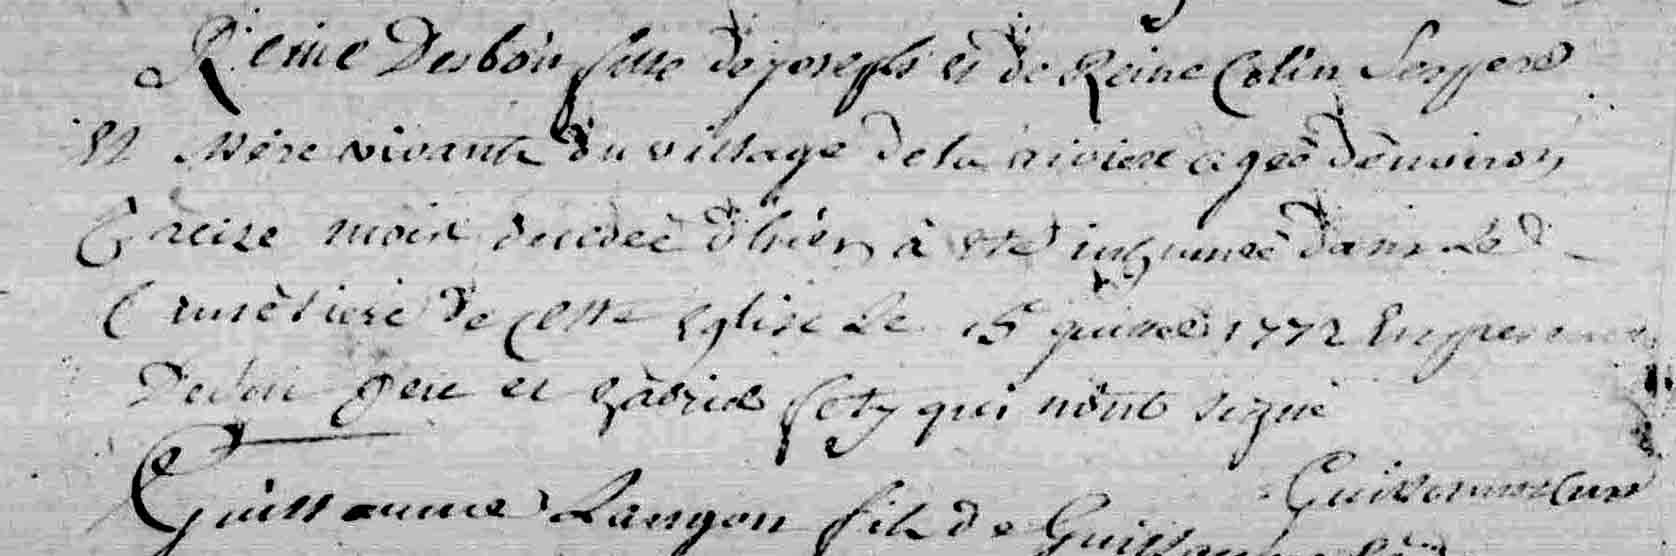 Reine Desbois fille de joseph et de Reine Colin Ses pere
Et Mère vivants du village de la riviere ageé dènviron
treize mois decedeé d'hier à eté inhumeé dans Le
Cimètiere de Cette Eglise Le 15 juillet 1772 En presence
De son pere et gàbriel qui nònt signé
Guillaume Curé
Guillaume Langon fils de Guillaume